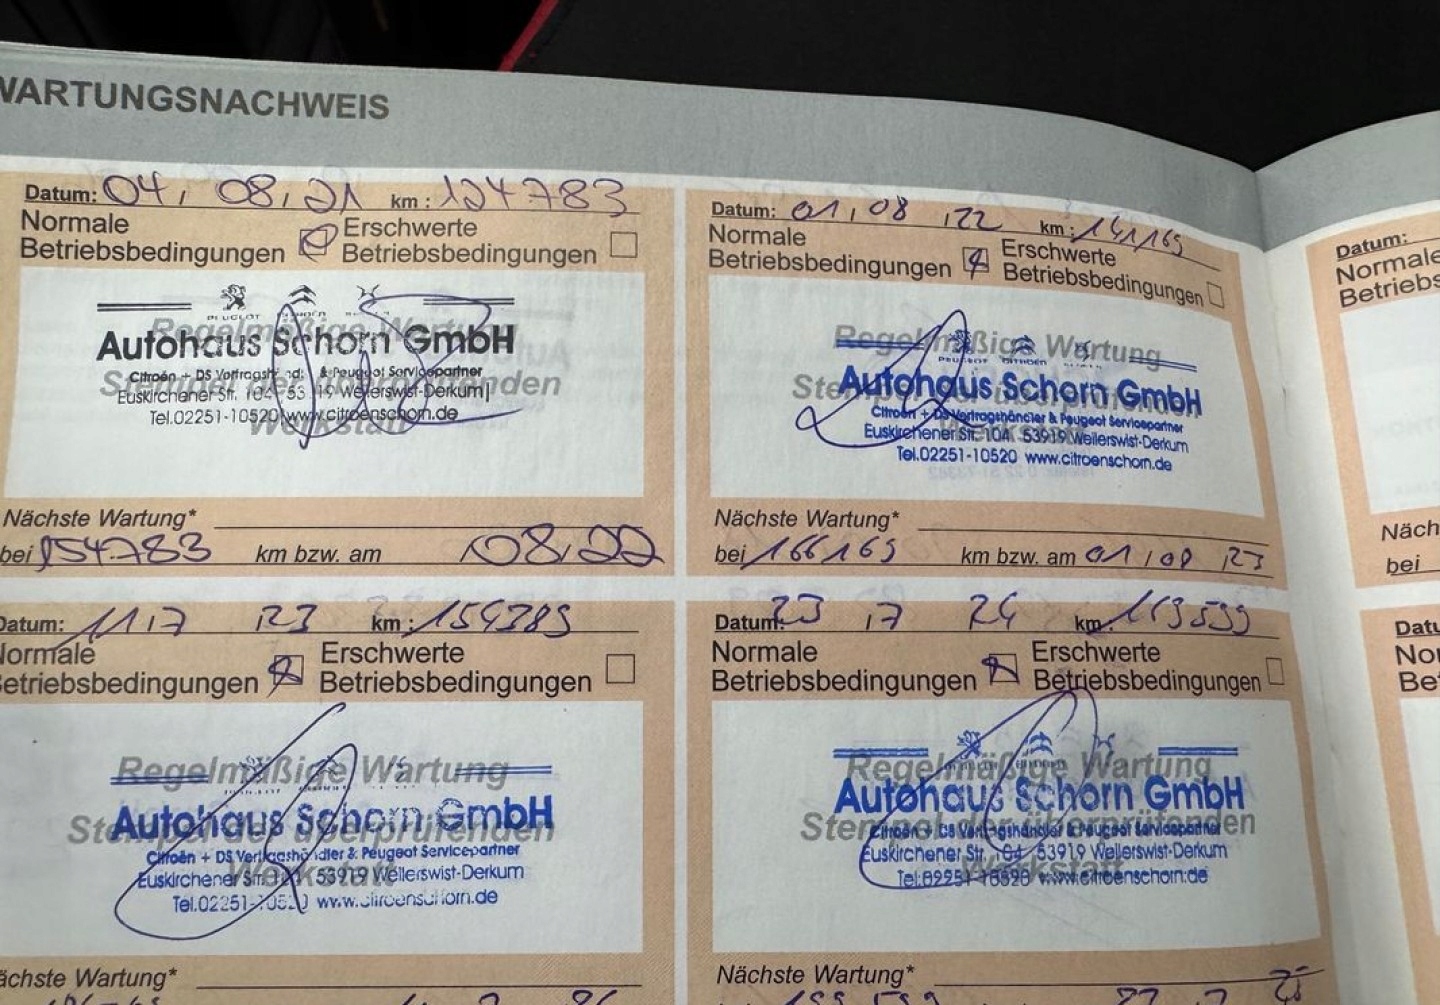 WARTUNGSNACHWEIS
Datum: 04. 08. 21 km: 124783
Normale Betriebsbedingungen
Erschwerte Betriebsbedingungen
Regelmäßige Wartung
Stempel der überprüfenden
Werkstatt
PEUGEOT CITROËN
Autohaus Schorn GmbH
Citroën + DS Vertragshändler & Peugeot Servicepartner
Euskirchener Str. 104 53919 Weilerswist-Derkum
Tel.02251-10520 www.citroenschorn.de
Nächste Wartung*
bei 154783 km bzw. am 08.22
Datum: 01.08.22 km: 141169
Normale Betriebsbedingungen
Erschwerte Betriebsbedingungen
Regelmäßige Wartung
Stempel der überprüfenden
Werkstatt
PEUGEOT CITROËN
Autohaus Schorn GmbH
Citroën + DS Vertragshändler & Peugeot Servicepartner
Euskirchener Str. 104 53919 Weilerswist-Derkum
Tel.02251-10520 www.citroenschorn.de
Nächste Wartung*
bei 166169 km bzw. am 01.08 23
Datum: 11.7 23 km: 154389
Normale Betriebsbedingungen
Erschwerte Betriebsbedingungen
Regelmäßige Wartung
Stempel der überprüfenden
Werkstatt
Autohaus Schorn GmbH
Citroën + DS Vertragshändler & Peugeot Servicepartner
Euskirchener Str. 53919 Weilerswist-Derkum
Tel.02251-10520 www.citroenschorn.de
Nächste Wartung*
Datum: 23 .7 24 km:
Normale Betriebsbedingungen
Erschwerte Betriebsbedingungen
Regelmäßige Wartung
Stempel der überprüfenden
Werkstatt
Autohaus Schorn GmbH
Citroën + DS Vertragshändler & Peugeot Servicepartner
Euskirchener Str. 104 53919 Weilerswist-Derkum
Tel.02251-10520 www.citroenschorn.de
Nächste Wartung*
Datum:
Normale
Betriebs
Näch
bei
Datu
No
Be